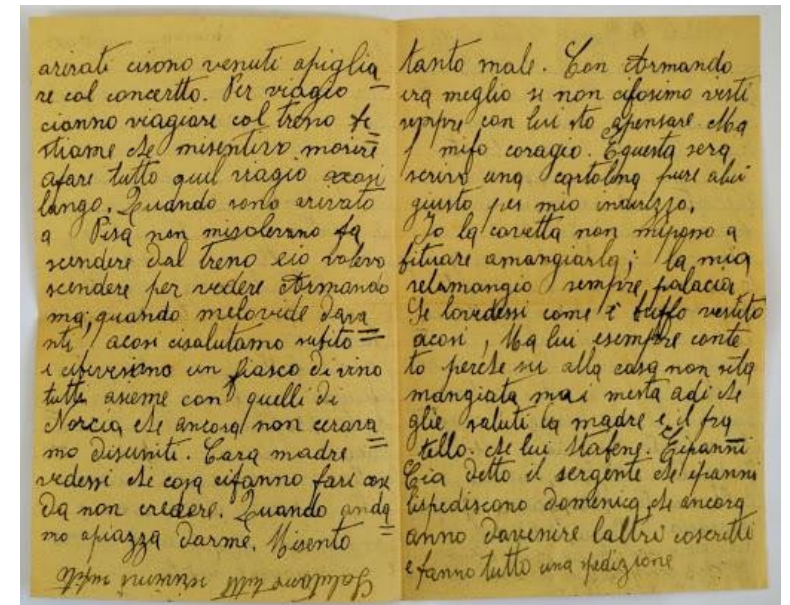 arivati cisono venuti apiglia
re col concertto. Per viagio =
cianno viagiare col treno be
stiame che misentivo morire
afare tutto quel viagio acosi
lungo. Quando sono arivato
a Pisa non misolevano fa
scendere dal treno eio volevo
scendere per vedere Armando
ma, quando melovide dava
nti acosi cisalutamo subito =
e cibevessimo un fiasco di vino
tutti asieme con quelli di
Norcia che ancora non cerava
mo disuniti. Cara madre
vedessi che cosa cifanno fare cose
da non credere. Quando anda
mo apiazza darme. Misento
Salutamo tutti scrivimi subito
tanto male. Con Armando
era meglio se non cifosimo visti
seppre con lui sto apensare. Ma
mifo coragio. Equesta sera
scrivo una cartolina pure alui
giusto per mio indirizzo.
Io la cavetta non mipono a
bituare amangiarla; la mia
selamangio sempre, palacia
Se lovedessi come è buffo vestito
acosi, Ma lui esempre conte
to perche su alla casa non sita
mangiata mai mesta adi che
glie saluti la madre e il fra
tello. che lui stabene. Eipanni
Cia detto il sergente che ipanni
lispediscono domenica, che ancora
anno davenire laltri coscritti
e fanno tutto una spedizione